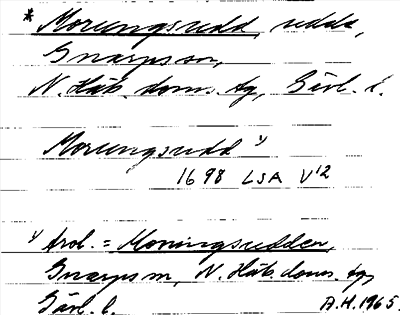 * Morungsudd, udde,
Gnarps sn,
N. Häls. doms. tg, Gävl. l.
Morungsudd ¹⁾
1698 LSA V12
¹⁾ trol. = Morningsudden,
Gnarps sn, N. Häls. doms. tg,
Gävl. l. A.H. 1965.